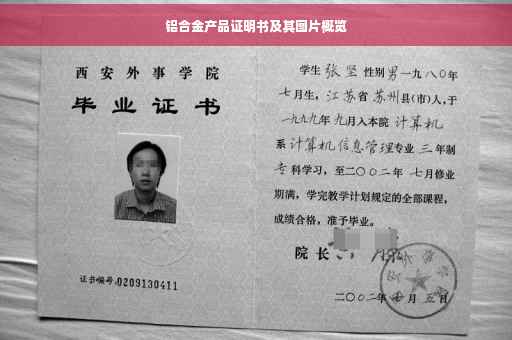 铝合金产品证明书及其图片概览
西安外事学院
毕业证书
证书编号:0209130411
学生 张坚 性别 男 一九八〇年
七月生, 江苏省 苏州县(市)人,于
一九九九年 九月入本院 计算机
系 计算机信息管理专业 三 年制
专 科学习, 至二〇〇二年 七月修业
期满, 学完教学计划规定的全部课程,
成绩合格, 准予毕业。
院长
二〇〇二年 七 月 五 日